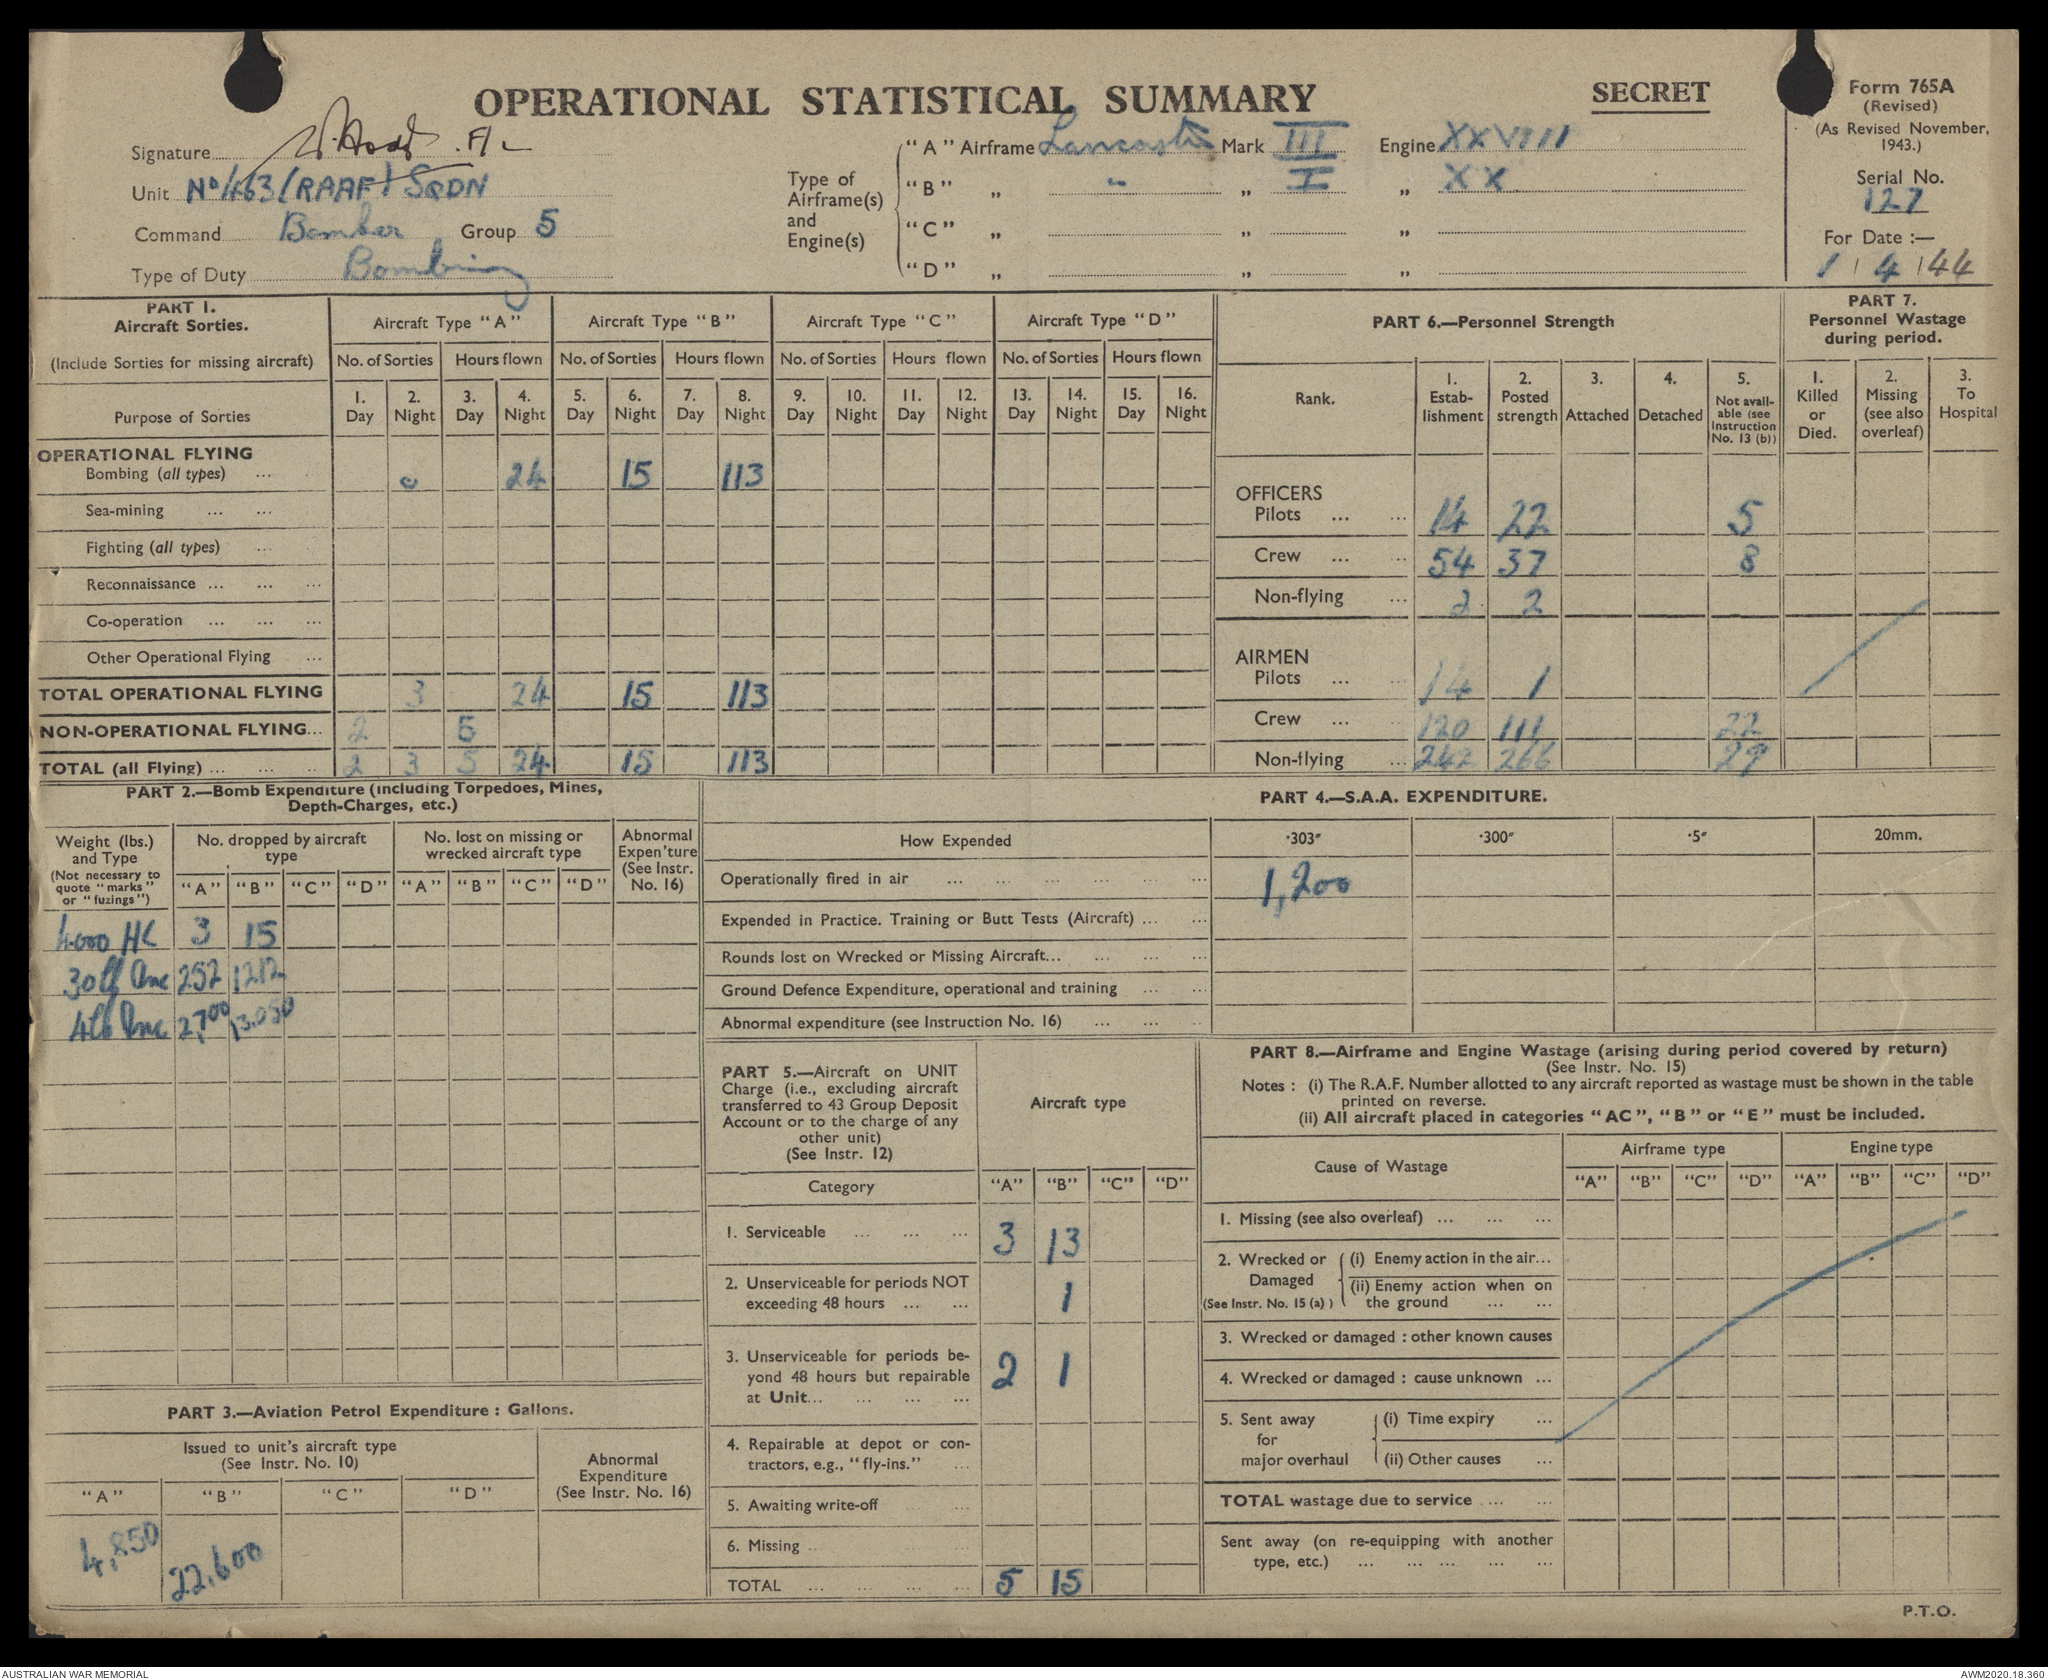 OPERATIONAL STATISTICAL SUMMARY
SECRET
Form 765A
(Revised)
(As Revised November, 1943.)
Serial No.
127
For Date :—
1 / 4 / 44
Signature
Unit No 463 (RAAF) SQDN
Command Bomber Group 5
Type of Duty Bombing
Type of Airframe(s) and Engine(s)
"A" Airframe Lancaster Mark III Engine XXVIII
"B" „ " „ I „ XX
"C" „ „ „
"D" „ „ „
PART 1.
Aircraft Sorties.
(Include Sorties for missing aircraft)
Purpose of Sorties
Aircraft Type "A" Aircraft Type "B" Aircraft Type "C" Aircraft Type "D"
No. of Sorties Hours flown No. of Sorties Hours flown No. of Sorties Hours flown No. of Sorties Hours flown
1. Day 2. Night 3. Day 4. Night 5. Day 6. Night 7. Day 8. Night 9. Day 10. Night 11. Day 12. Night 13. Day 14. Night 15. Day 16. Night
OPERATIONAL FLYING
Bombing (all types) ... 24 15 113
Sea-mining ... ...
Fighting (all types) ...
Reconnaissance ... ... ...
Co-operation ... ... ...
Other Operational Flying ...
TOTAL OPERATIONAL FLYING 3 24 15 113
NON-OPERATIONAL FLYING... 2 5
TOTAL (all Flying) ... ... .. 2 3 5 24 15 113
PART 6.—Personnel Strength
Rank.
1. Estab-lishment
2. Posted strength
3. Attached
4. Detached
5. Not avail-able (see Instruction No. 13 (b))
OFFICERS
Pilots ... ... 14 22 5
Crew ... ... 54 37 8
Non-flying ... 2 2
AIRMEN
Pilots ... .. 14 1
Crew ... .. 120 111 22
Non-flying ... 242 266 29
PART 7.
Personnel Wastage during period.
1. Killed or Died.
2. Missing (see also overleaf)
3. To Hospital
PART 2.—Bomb Expenditure (including Torpedoes, Mines,
Depth-Charges, etc.)
Weight (lbs.) and Type
(Not necessary to quote "marks" or "fuzings")
No. dropped by aircraft type
No. lost on missing or wrecked aircraft type
Abnormal Expen'ture (See Instr. No. 16)
"A" "B" "C" "D" "A" "B" "C" "D"
4000 HC 3 15
30 lb Inc 252 1212
4 lb Inc 2,700 13.050
PART 3.—Aviation Petrol Expenditure : Gallons.
Issued to unit's aircraft type
(See Instr. No. 10)
Abnormal Expenditure (See Instr. No. 16)
"A" "B" "C" "D"
4,850 22,600
PART 4.—S.A.A. EXPENDITURE.
How Expended ·303" ·300" ·5" 20mm.
Operationally fired in air ... ... ... ... ... 1,200
Expended in Practice. Training or Butt Tests (Aircraft) ... ...
Rounds lost on Wrecked or Missing Aircraft... ... ... ...
Ground Defence Expenditure, operational and training ... ...
Abnormal expenditure (see Instruction No. 16) ... ... ..
PART 5.—Aircraft on UNIT
Charge (i.e., excluding aircraft
transferred to 43 Group Deposit
Account or to the charge of any
other unit)
(See Instr. 12)
Aircraft type
Category "A" "B" "C" "D"
1. Serviceable ... ... ... 3 13
2. Unserviceable for periods NOT
exceeding 48 hours ... ... 1
3. Unserviceable for periods be-
yond 48 hours but repairable
at Unit... ... ... ... 2 1
4. Repairable at depot or con-
tractors, e.g., "fly-ins." ...
5. Awaiting write-off
6. Missing
TOTAL ... ... ... ... 5 15
PART 8.—Airframe and Engine Wastage (arising during period covered by return)
(See Instr. No. 15)
Notes : (i) The R.A.F. Number allotted to any aircraft reported as wastage must be shown in the table
printed on reverse.
(ii) All aircraft placed in categories "AC", "B" or "E" must be included.
Cause of Wastage
Airframe type Engine type
"A" "B" "C" "D" "A" "B" "C" "D"
1. Missing (see also overleaf) ... ... ...
2. Wrecked or Damaged (See Instr. No. 15 (a) )
(i) Enemy action in the air...
(ii) Enemy action when on
the ground ... ...
3. Wrecked or damaged : other known causes
4. Wrecked or damaged : cause unknown ...
5. Sent away for major overhaul
(i) Time expiry ...
(ii) Other causes ...
TOTAL wastage due to service ... ...
Sent away (on re-equipping with another
type, etc.) ... ... ... ... ...
P.T.O.
AUSTRALIAN WAR MEMORIAL
AWM2020.18.360